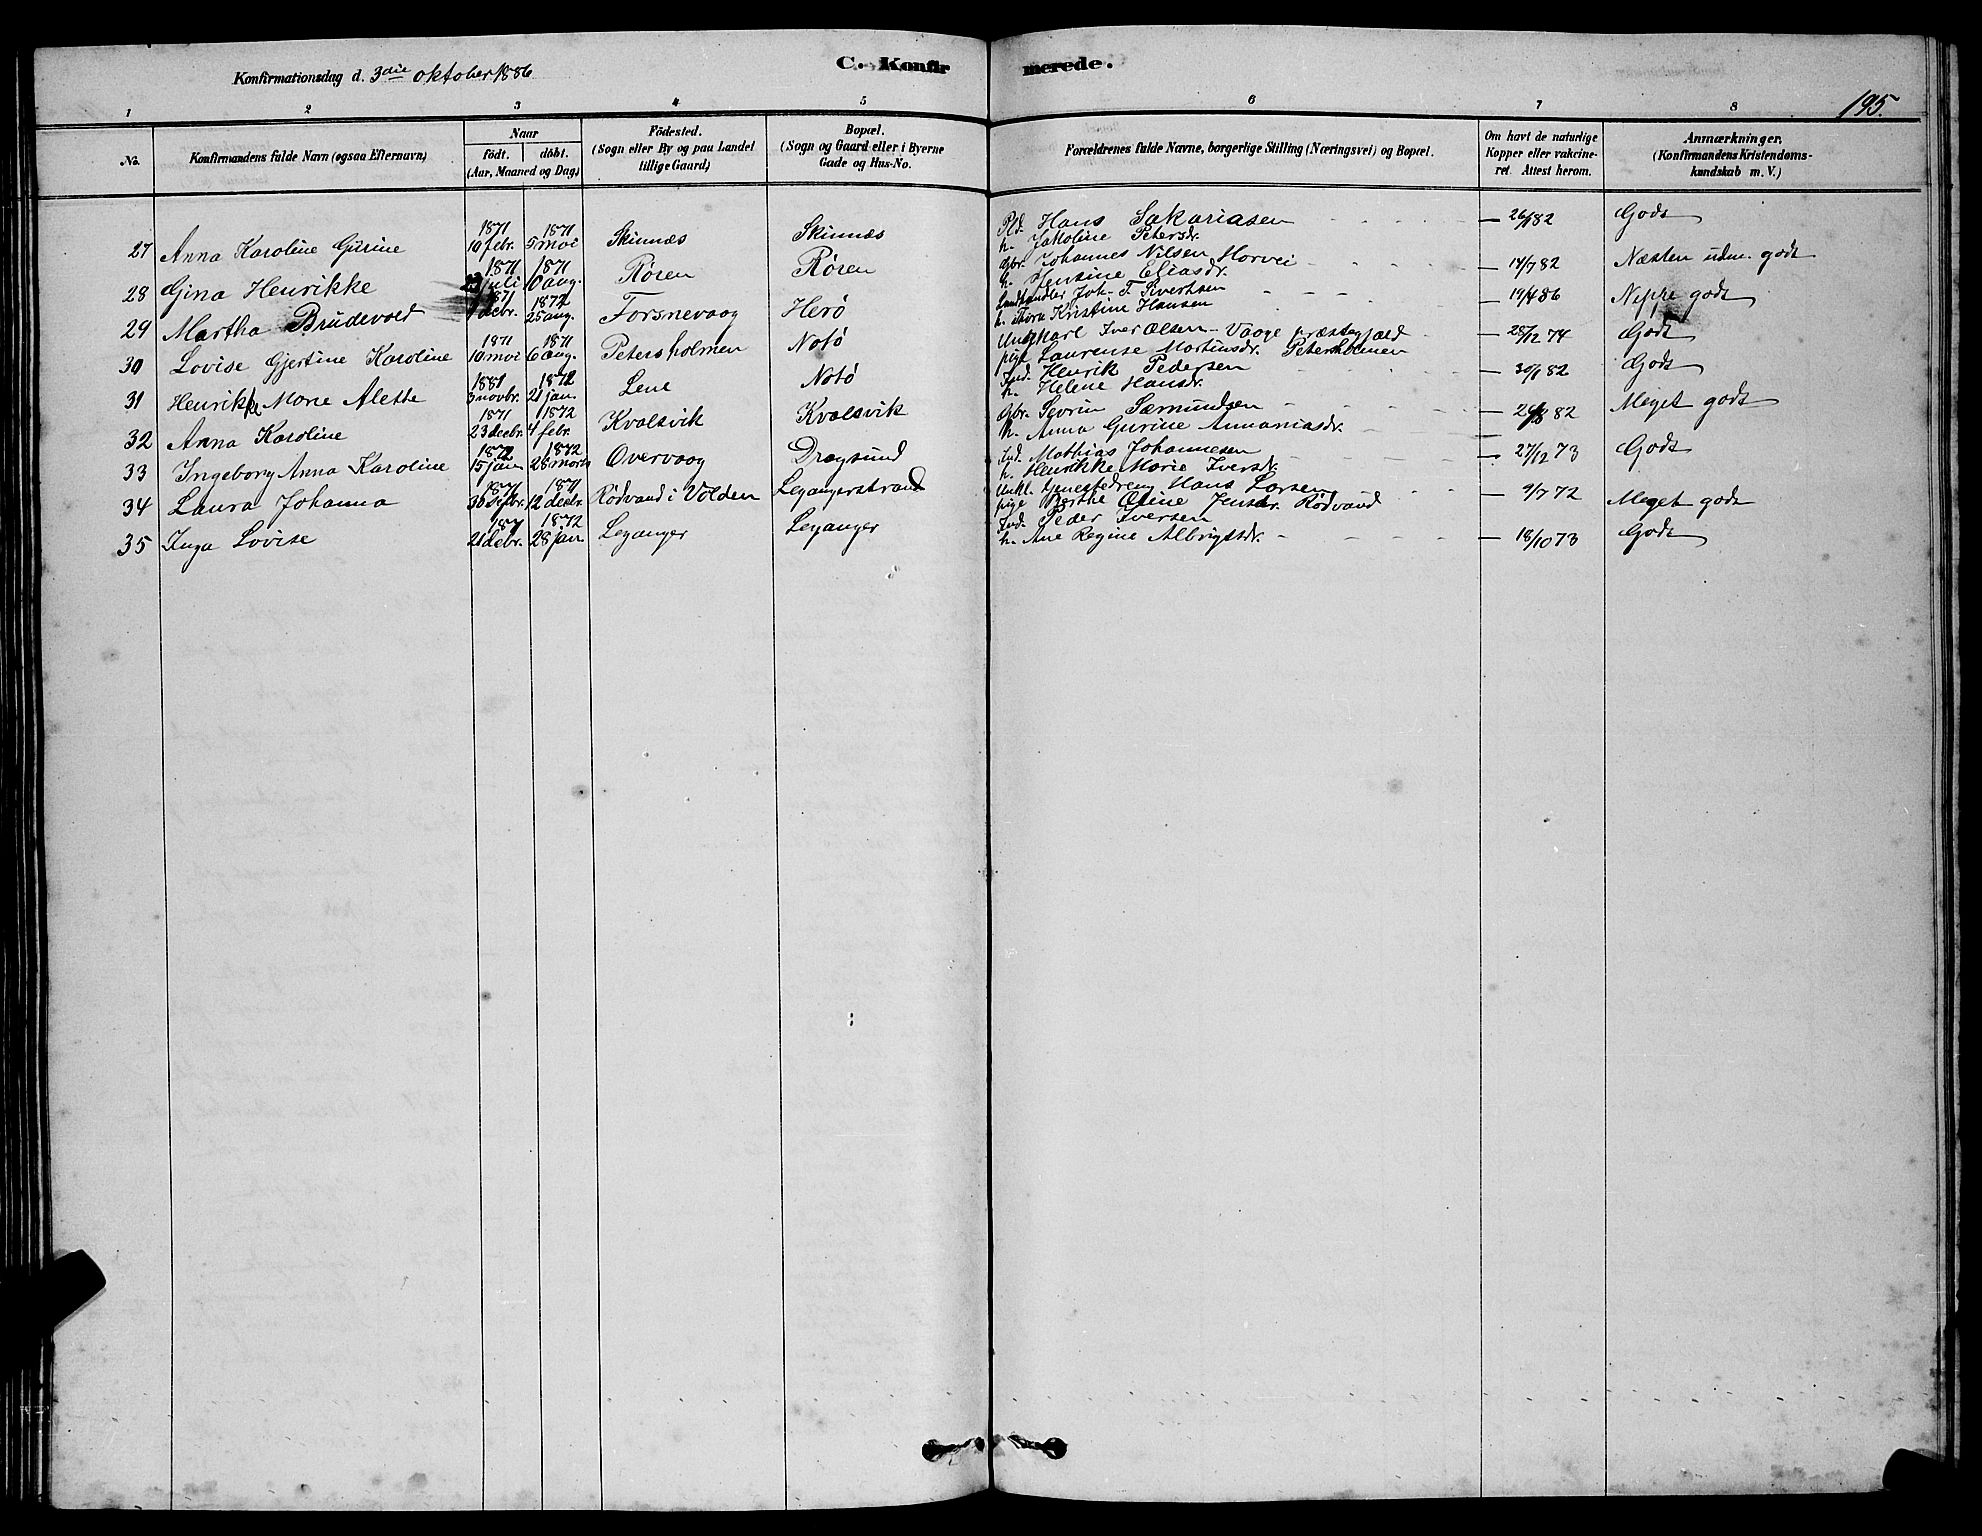 Konfirmationsdag d. 3die oktober 1886
C. Konfirmerede.
195.
1 2 3 4 5 6 7 8
No.
Konfirmandens fulde Navn (ogsaa Efternavn)
Naar
födt. döbt.
(Aar, Maaned og Dag)
Födested.
(Sogn eller By og paa Landet
tillige Gaard)
Bopæl.
(Sogn og Gaard eller i Byerne
Gade og Hus-No.
Forældrenes fulde Navne, borgerlige Stilling (Næringsvei) og Bopæl.
Om havt de naturlige
Kopper eller vakcine-
ret. Attest herom.
Anmærkninger.
(Konfirmandens Kristendoms-
kundskab m. V.)
27 Anna Karoline Gurine 1871 10 febr. 1871 5 mai Skinnæs Skinnæs Pld. Hans Sakariasen — 26/1 82 Godt
h. Jakoline Petersdr.
28 Gina Henrikke 1871 juli 1871 10 aug. Røren Røren Gbr. Johannes Nilsen Horvei — 14/7 82 Næsten udm. godt
h. Hensine Eliasdr.
29 Martha Brudevold 1871 debr. 1872 25 aug. Forsnevaag Herø Landhandler Joh. T. Sivertsen — 19/4 86 Neppe godt
h. Thora Kristine Hansen
30 Lovise Gjertine Karoline 1871 10 mai 1871 6 aug. Petersholmen Notø Ungkarl Iver Olsen - Vaage præstegjæld — 28/12 74 Godt
pige Laurense Martinsdr. Petersholmen
31 Henrikke Marie Alette 1881 3 novbr. 1872 21 jan. Lene Notø Ind. Henrik Pedersen — 30/1 82 Godt
h. Helene Hansdr.
32 Anna Karoline 1871 23 decbr. 1872 4 febr. Kvalsvik Kvalsvik Gbr. Sevrin Sæmundsen — 82 Meget godt
h. Anna Gurine Annaniasdr.
33 Ingeborg Anna Karoline 1872 15 jan 1872 28 marts Overvaag Dragsund Ind. Mathias Johannesen — 27/12 73 Godt
h. Henrikke Marie Iversdr.
34 Laura Johanna 1871 30 septbr. 1871 12 decbr. Rødvand i Volden Legangerstrand Unkl. Tjenestedreng Hans Larsen — 9/7 72 Meget godt
pige Berthe Oline Jensdr. Rødvand
35 Inga Lovise 187 21 debr. 1872 28 jan. Leganger Leganger Ind. Peder Iversen — 18/10 73 Godt
h. Ane Regine Albrigtsdr.